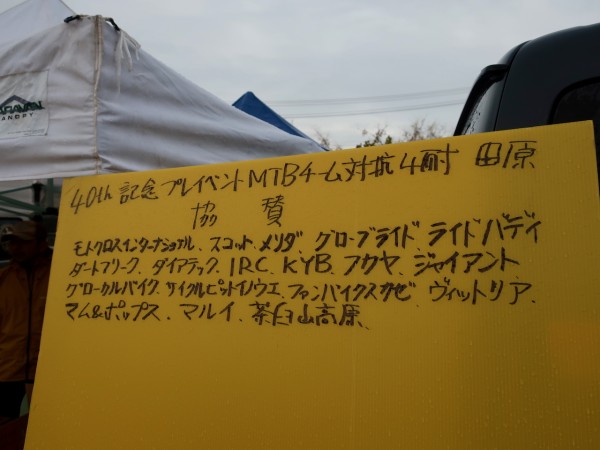 CARAVAN
CANOPY
40th 記念 プレイベント MTBチーム対抗4耐 田原
協賛
モトクロスインターナショナル、スコット、メリダ、グローブライド、ライドバディ
ダートフリーク、ダイアテック、IRC、KYB、フカヤ、ジャイアント
グローカルバイク、サイクルピットイノウエ、ファンバイクスカゼ、ヴィットリア、
マム&ポップス、マルイ、茶臼山高原、